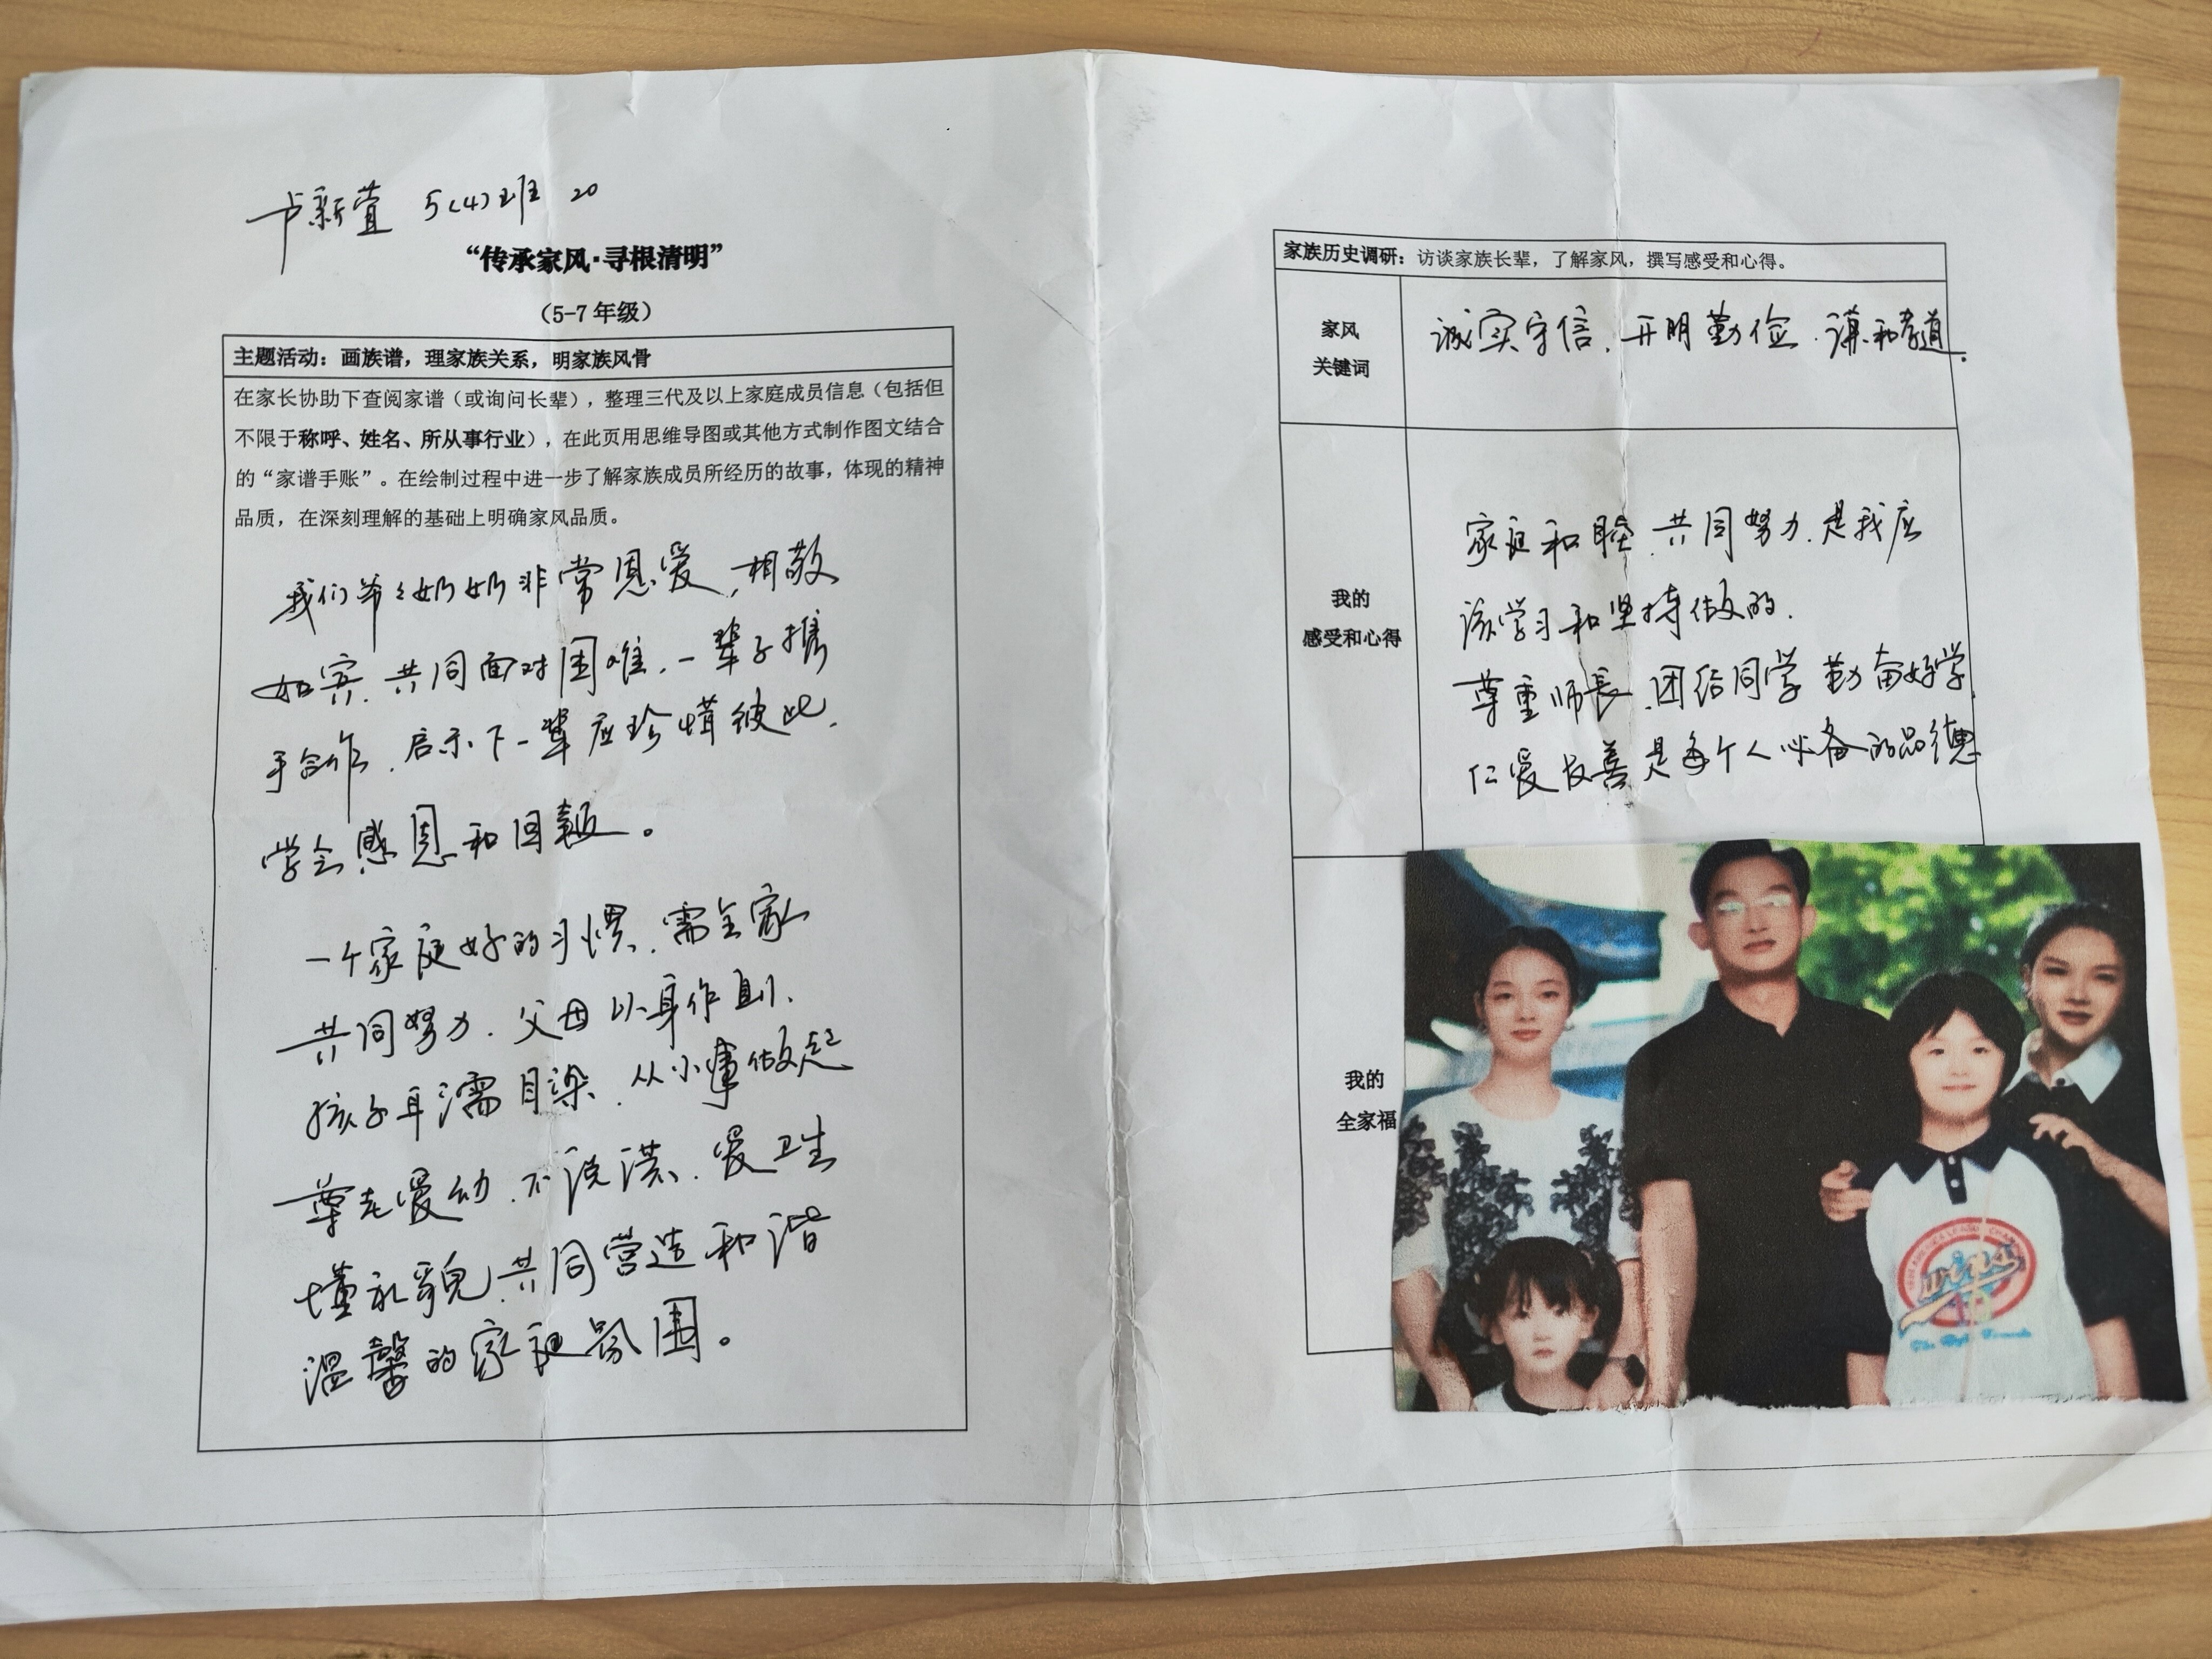 卢新萱 5(4)班 20
“传承家风·寻根清明”
（5-7 年级）
主题活动：画族谱，理家族关系，明家族风骨
在家长协助下查阅家谱（或询问长辈），整理三代及以上家庭成员信息（包括但
不限于称呼、姓名、所从事行业），在此页用思维导图或其他方式制作图文结合
的“家谱手账”。在绘制过程中进一步了解家族成员所经历的故事，体现的精神
品质，在深刻理解的基础上明确家风品质。
我们爷爷奶奶非常恩爱，相敬
如宾、共同面对困难、一辈子携
手合作、启示下一辈应珍惜彼此、
学会感恩和回報。
一个家庭好的习惯、需全家人
共同努力、父母以身作则、
孩子耳濡目染、从小事做起
尊老爱幼、不说谎、爱卫生
懂礼貌、共同营造和谐
温馨的家庭氛围。
家族历史调研：访谈家族长辈，了解家风，撰写感受和心得。
家风
关键词
诚实守信、开明勤俭、谦和孝道.
我的
感受和心得
家庭和睦、共同努力、是我应
该学习和坚持做的.
尊重师長、团结同学 勤奋好学
仁爱友善是每个人必备的品德
我的
全家福